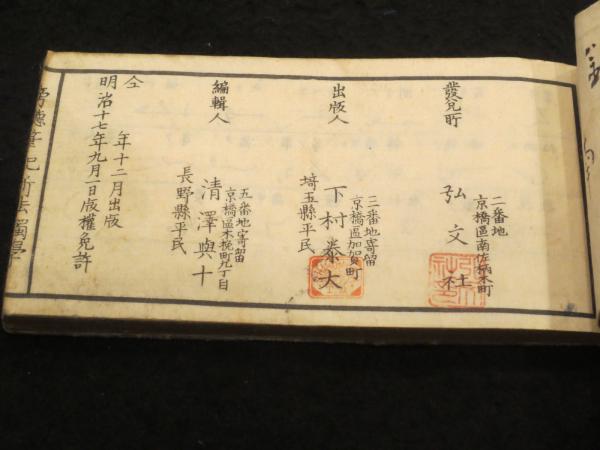 發兌所
京橋區南佐柄木町
二番地
弘文社
出版人
京橋區加賀町
三番地寄留
埼玉縣平民
下村泰大
編輯人
京橋區木挽町九丁目
五番地寄留
長野縣平民
清澤與十
明治十七年九月一日版權免許
仝 年十二月出版
傍聽筆記新法獨學